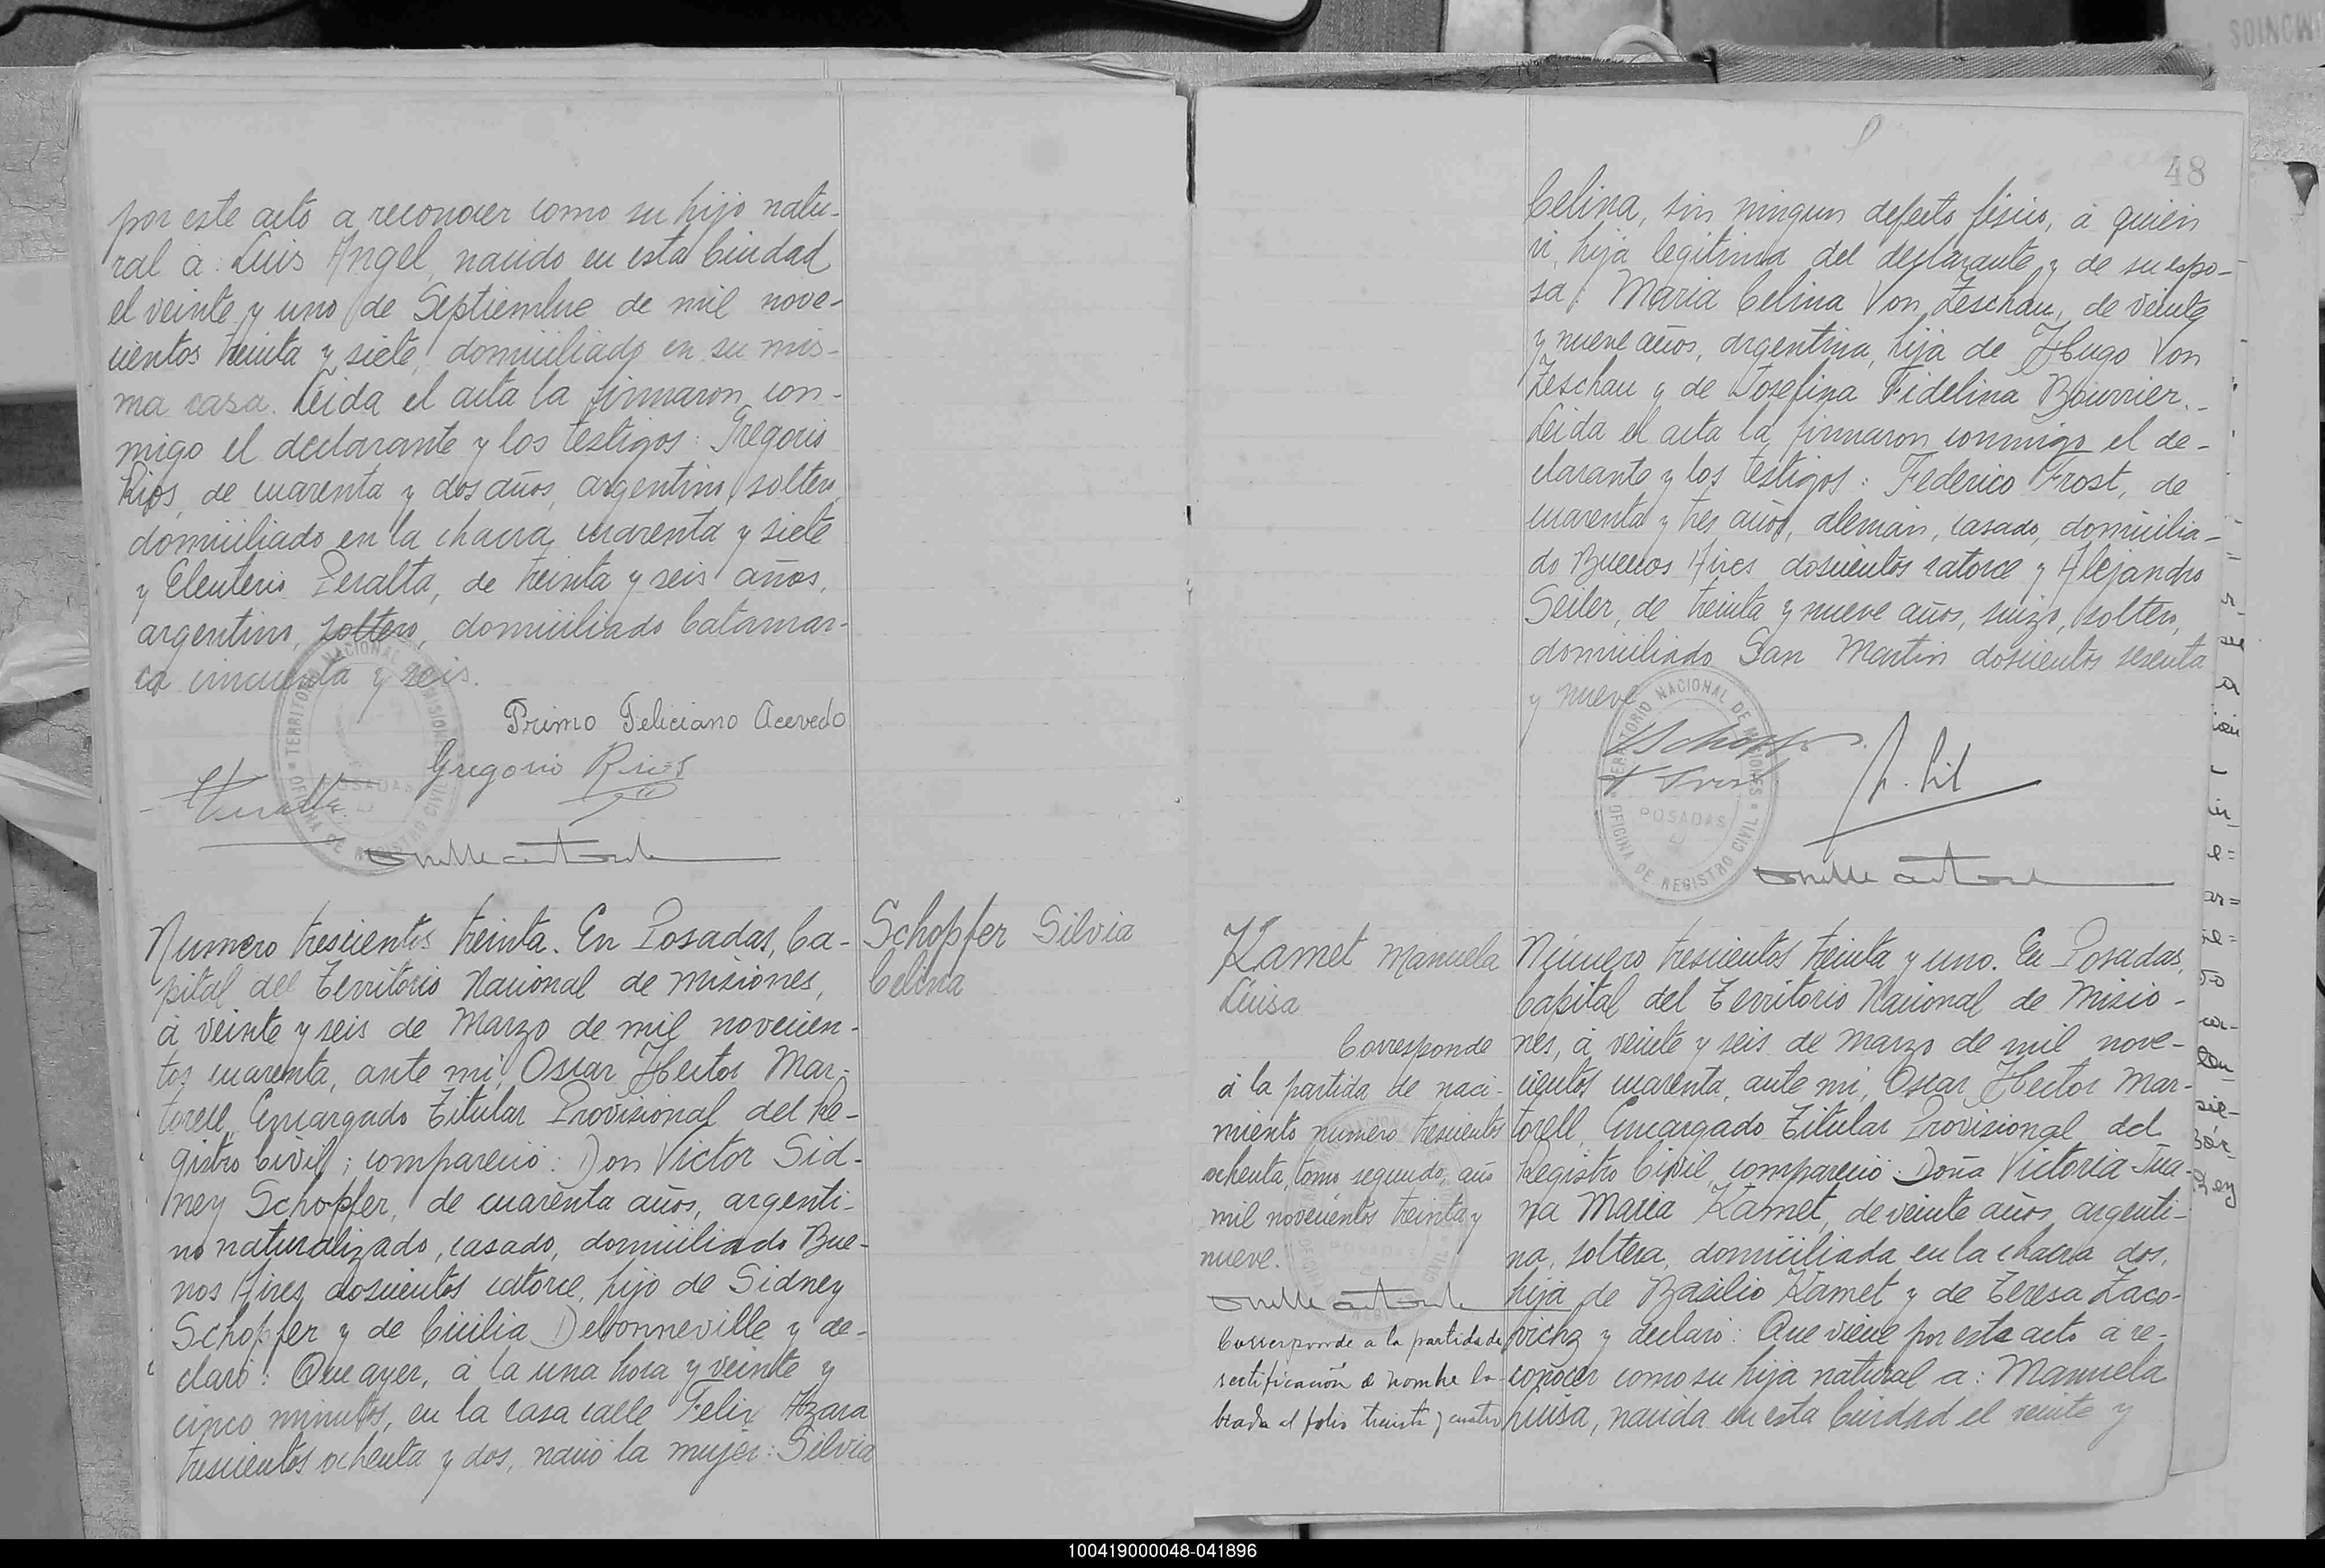 por este acto a reconocer como su hijo natu-
ral á: Luis Angel, nacido en esta Ciudad
el veinte y uno de Septiembre de mil nove-
cientos treinta y siete, domiciliado en su mis-
ma casa. Leida el acta la firmaron con-
migo el declarante y los testigos: Gregorio
Rios, de cuarenta y dos años, argentino, soltero,
domiciliado en la chacra cuarenta y siete
y Eleuterio Peralta, de treinta y seis años,
argentino, soltero, domiciliado Catamar-
ca cincuenta y seis.
Primo Feliciano Acevedo
Gregorio Rios
TERRITORIO NACIONAL DE MISIONES
POSADAS
OFICINA DE REGISTRO CIVIL
Numero trescientos treinta. En Posadas, Ca-
pital del Territorio Nacional de Misiones,
á veinte y seis de Marzo de mil novecien-
tos cuarenta, ante mi, Oscar Hector Mar-
torell, Encargado Titular Provisional del Re-
gistro Civil; compareció: Don Victor Sid-
ney Schopfer, de cuarenta años, argenti-
no naturalizado, casado, domiciliado Bue-
nos Aires doscientos catorce, hijo de Sidney
Schopfer y de Cicilia Debonneville y de-
claró: Que ayer, á la una hora y veinte y
cinco minutos, en la casa calle Felix Azara
trescientos ochenta y dos, nació la mujer: Silvia
Schopfer Silvia
Celina
48
Celina, sin ningun defecto fisico, á quien
vi, hija legitima del declarante y de su espo-
sa: Maria Celina Von Zeschau, de veinte
y nueve años, argentina, hija de Hugo Von
Zeschau y de Josefina Fidelina Bourrier.-
Leida el acta la firmaron conmigo el de-
clarante y los testigos: Federico Frost, de
cuarenta y tres años, alemán, casado, domicilia-
do Buenos Aires doscientos catorce y Alejandro
Seiler, de treinta y nueve años, suizo, soltero,
domiciliado San Martin doscientos sesenta
y nueve
TERRITORIO NACIONAL DE MISIONES
POSADAS
OFICINA DE REGISTRO CIVIL
Kamet Manuela
Luisa
Corresponde
á la partida de naci-
miento numero trescientos
ochenta, tomo segundo, año
mil novecientos treinta y
nueve.
Corresponde a la partida de
rectificación de nombre la-
brada al folio treinta y cuatro
Número trescientos treinta y uno. En Posadas,
Capital del Territorio Nacional de Misio-
nes, á veinte y seis de Marzo de mil nove-
cientos cuarenta, ante mi, Oscar Hector Mar-
torell, Encargado Titular Provisional del
Registro Civil, compareció: Doña Victoria Jua-
na Maria Kamet, de veinte años, argenti-
na, soltera, domiciliada en la chacra dos,
hija de Basilio Kamet y de Teresa Zaco-
vichz y declaró: Que viene por este acto á re-
conocer como su hija natural a: Manuela
Luisa, nacida en esta Ciudad el veinte y
100419000048-041896